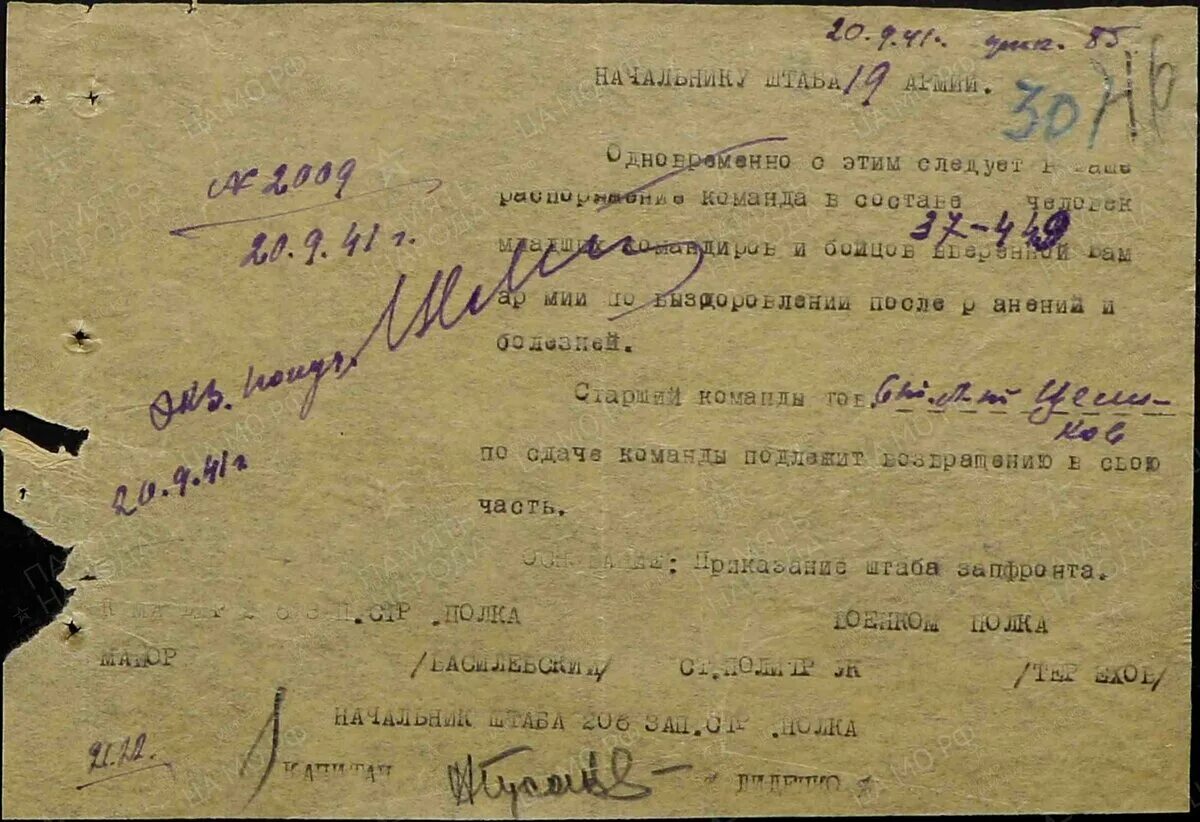 20.9.41г. 85
НАЧАЛЬНИКУ ШТАБА 19 АРМИИ.
30/
№ 2009
20.9.41 г.
Одновременно с этим следует в Ваше
распоряжение команда в составе человек
37-449
младших командиров и бойцов вверенной Вам
ар мии по выздоровлении после р анений и
болезней.
экз. получ.
20.9.41г
Старший команды тов. Цели-
ков
по сдаче команды подлежит возвращению в свою
часть.
ОСНОВАНИЕ: Приказание штаба запфронта.
П.СТР .ПОЛКА ВОЕНКОМ ПОЛКА
МАЙОР /ВАСИЛЕВСКИЙ/ СТ.ПОЛИТР УК /ТЕР ЕХОВ/
НАЧАЛЬНИК ШТАБА 206 ЗАП.СТР .ПОЛКА
КАПИТАН